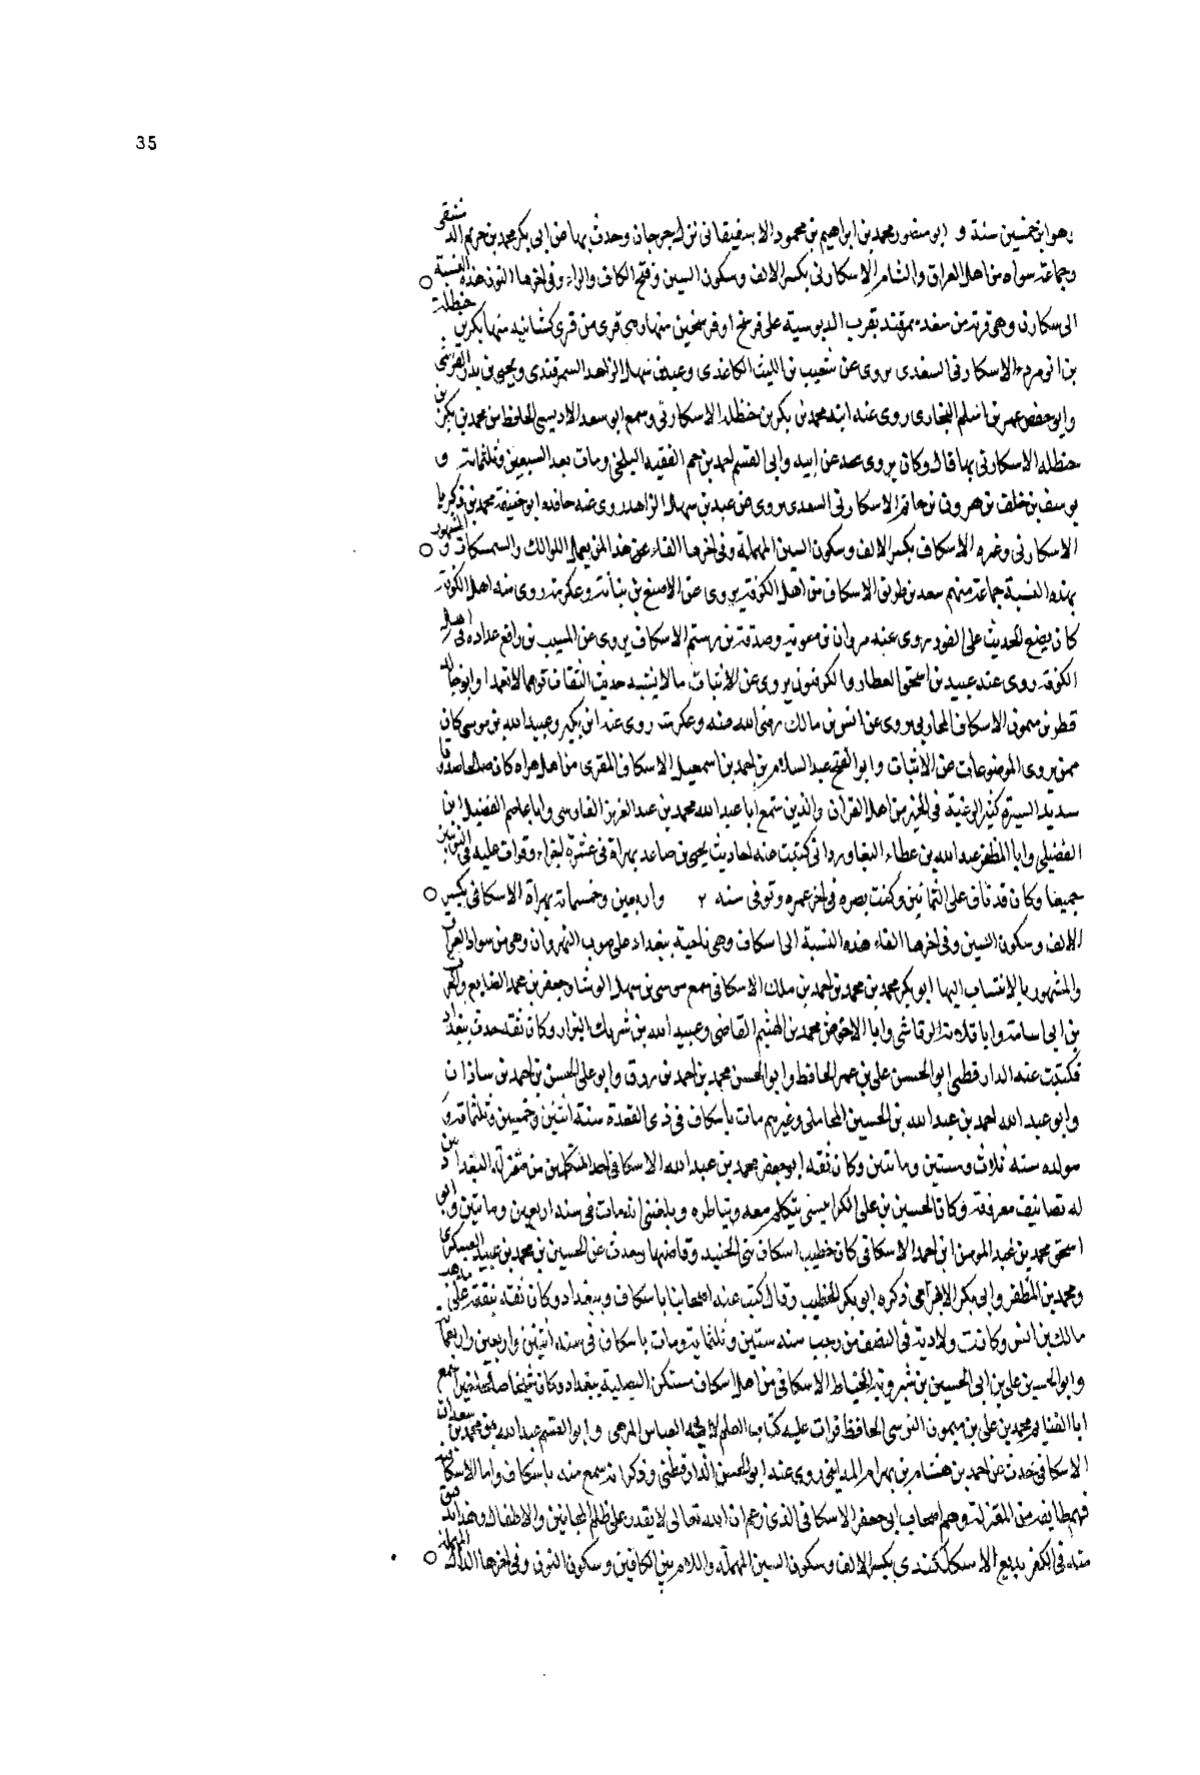 35
وهو ابن خمسين سنة و ابو منصور محمد بن ابراهيم بن محمود الاسفيقانى نزل جرجان وحدث بها عن ابى بكر محمد بن خريم الدمشقى
وجماعة سواه من اهل العراق والشام الاسكارنى بكسر الالف وسكون السين وفتح الكاف والراء وفى اخرها النون هذه النسبة
الى سكارن وهى قرية من سغد سمرقند بقرب الدبوسية على فرسخ او فرسخين منها وهى قرى من قرى كشانيه منها بكر بن حنظلة
بن انومرد الاسكارنى السغدى يروى عن شعيب بن الليث الكاغدى وعبد بن سهل الزاهد السمرقندى ويحيى بن بدر القرشى
وابو حفص عمر بن اسلم البخارى روى عنه ابنه محمد بن بكر بن حنظله الاسكارنى وسمع ابو سعد الادريسى الحافظ من محمد بن بكر بن
حنظله الاسكارنى بها قال وكان يروى عن ابيه وابى القسم احمد بن حم الفقيه البلخى ومات بعد السبعين وثلثمائة و
يوسف بن خلف بن هرون بن حاتم الاسكارنى السغدى يروى عن عبد بن سهل الزاهد روى عنه حافده ابو حنيفة محمد بن زكريا
الاسكارنى وغيره الاسكاف بكسر الالف وسكون السين المهملة وفى اخرها الفاء عن هذا لمن يعمل اللوالك والشمسكات و المشهور
بهذه النسبة جماعة منهم سعد بن طريف الاسكاف من اهل الكوفة يروى عن الاصبغ بن نباتة وعكرمة روى عنه اهل الكوفة
كان يضع الحديث على الفور روى عنه مروان بن معوية وصدقة بن رستم الاسكاف يروى عن المسيب بن رافع عداده فى اهل
الكوفة روى عنه عبيد بن اسحق العطار والكوفيون يروى عن الاثبات ما لا يشبه حديث الثقات توهما لا تعمدا وابو خالد
قطر بن ميمون الاسكاف المحاربى يروى عن انس بن مالك رضى الله عنه وعكرمة روى عنه ابن بكير وعبيد الله بن موسى كان
ممن يروى الموضوعات عن الاثبات وابو الفتح عبد السلام بن احمد بن اسمعيل الاسكاف المقرى من اهل هراه كان صالحا صدوقا
سديد السيرة كثير الرغبة فى الخير من اهل القران والدين سمع ابا عبد الله محمد بن عبد العزيز الفارسى وابا عاصم الفضيل ابن
الفضيلى وابا المظفر عبد الله بن عطاء البغاوردانى كتبت عنه احاديث يحيى بن صاعد بهراة فى عشرة اجزاء وقرات عليه فى النوبتين
جميعا وكان قد ناف على الثمانين وكف بصره فى اخر عمره وتوفى سنه ٢ واربعين وخمسمائة بهراة الاسكافى بكسر
الالف وسكون السين وفى اخرها الفاء هذه النسبة الى اسكاف وهى ناحية ببغداد على صوب النهروان وهى من سواد العراق
والمشهور بالانتساب اليها ابو بكر محمد بن محمد بن احمد بن ملك الاسكافى سمع موسى بن سهل الوشا وجعفر بن محمد الصايغ والحرث
بن ابى اسامة وابا قلابة الرقاشى وابا الاحوص محمد بن الهيثم القاضى وعبيد الله بن شريك البزار وكان ثقة حدث ببغداد
فكتب عنه الدارقطنى ابو الحسن على بن عمر الحافظ وابو الحسن محمد بن احمد بن روق وابو على الحسن بن احمد بن ساذان
وابو عبد الله احمد بن عبد الله بن الحسين المحاملى وغيرهم مات باسكاف فى ذى القعدة سنة اثنين وخمسين وثلثمائة و
مولده سنه ثلاث وستين ومائتين وكان ثقه ابو جعفر محمد بن عبد الله الاسكافى احد المتكلمين من معتزلة البغداديين
له تصانيف معروفة وكان الحسين بن على الكرابيسى يتكلم معه ويناظره وبلغنى انه مات فى سنه اربعين ومائتين وابو
اسحق محمد بن عبد المومن ابن احمد الاسكافى كان خطيب اسكاف بنى الجنيد وقاضيها وحدث عن الحسين بن محمد بن عبيد العسكرى
ومحمد بن المظفر وابى بكر الابهرى ذكره ابو بكر الخطيب وقال كتب عنه اصحابنا باسكاف وببغداد وكان ثقه يتفقه على مذهب
مالك بن انس وكانت ولادته فى النصف من رجب سنه ستين وثلثماية ومات باسكاف فى سنه اثنين واربعين واربعمائة
وابو الحسين على بن ابى الحسين بن شيرويه الخياط الاسكافى من اهل اسكاف سكن البصلية ببغداد وكان شيخا صالحا خيرا سمع
ابا الغنايم محمد بن على بن ميمون النرسى الحافظ قرات عليه كتاب العلم لابى العباس المرهبى وابو القسم عبد الله بن محمد بن سعدان
الاسكافى حدث عن احمد بن هشام بن بهرام المداينى روى عنه ابو الحسن الدارقطنى وذكر انه سمع منه باسكاف واما الاسكافية
فهم طايفه من المعتزلة وهم اصحاب ابى جعفر الاسكافى الذى زعم ان الله تعالى لا يقدر على ظلم المجانين والاطفال وهذا تدقيق
منه فى الكفر بديع الاسكلكندى بكسر الالف وسكون السين المهملة واللام بين الكافين وسكون النون وفى اخرها الدال المهملة